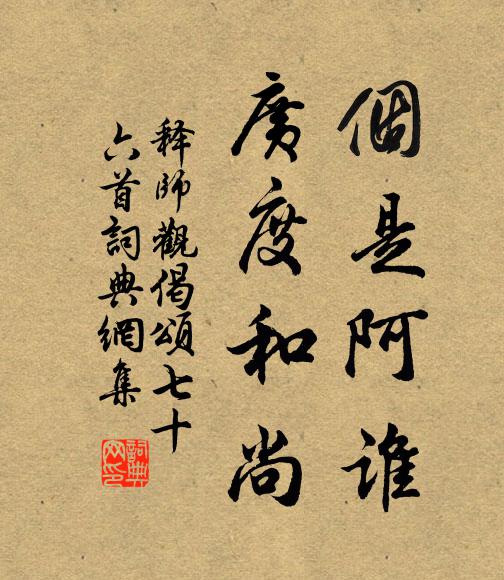 個是阿誰
廣度和尚
釋師觀偈頌七十
六首詞典網集
詞典
网印